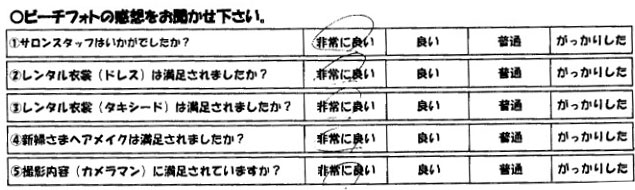 ○ビーチフォトの感想をお聞かせ下さい。
①サロンスタッフはいかがでしたか？ 非常に良い 良い 普通 がっかりした
②レンタル衣裳（ドレス）は満足されましたか？ 非常に良い 良い 普通 がっかりした
③レンタル衣裳（タキシード）は満足されましたか？ 非常に良い 良い 普通 がっかりした
④新婦さまヘアメイクは満足されましたか？ 非常に良い 良い 普通 がっかりした
⑤撮影内容（カメラマン）に満足されていますか？ 非常に良い 良い 普通 がっかりした